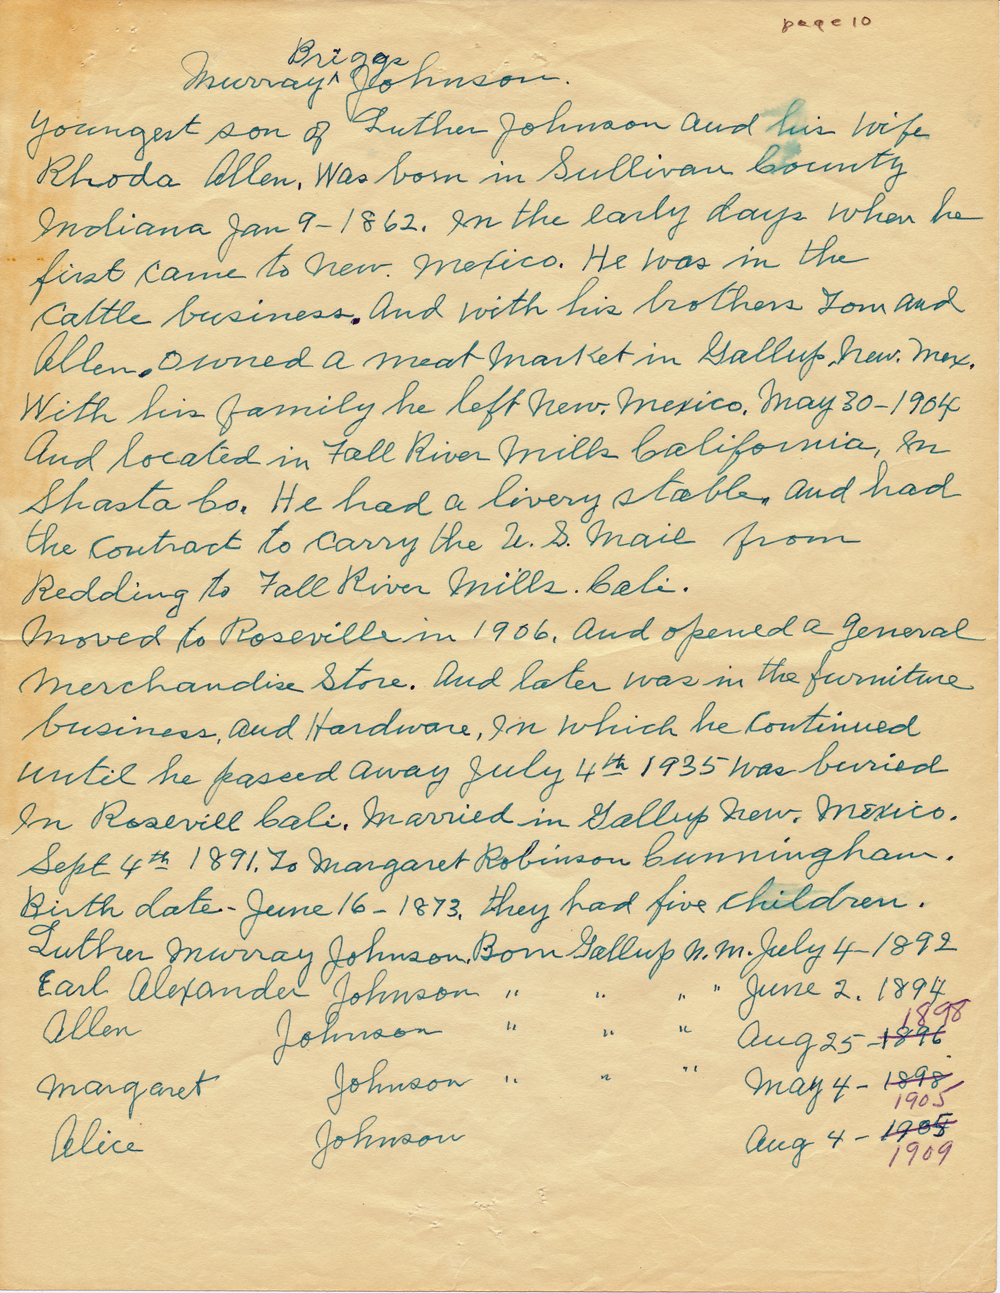 page 10
Briggs
Murray ^ Johnson.
Youngest son of Luther Johnson and his wife
Rhoda Allen. Was born in Sullivan County
Indiana Jan 9-1862. In the early days when he
first came to New. Mexico. He was in the
Cattle business. And with his brothers Tom and
Allen. Owned a meat Market in Gallup, New. Mex.
With his family he left New. Mexico. May 30-1904
And located in Fall River Mills California, In
Shasta Co. He had a livery stable. And had
the Contract to Carry the U.S. Mail from
Redding to Fall River Mills. Cali.
Moved to Roseville in 1906. And opened a General
Merchandise Store. And later was in the furniture
business, and Hardware, In which he Continued
until he passed away July 4th 1935 was buried
In Rosevill Cali. Married in Gallup New. Mexico.
Sept 4th 1891. To Margaret Robinson Cunningham.
Birth date - June 16-1873. they had five children.
Luther Murray Johnson. Born Gallup N.M. July 4-1892
Earl Alexander Johnson " " " " June 2. 1894
1898
Allen Johnson " " " Aug 25-1896
Margaret Johnson " " " May 4-1898
1905
Alice Johnson Aug 4-1905
1909